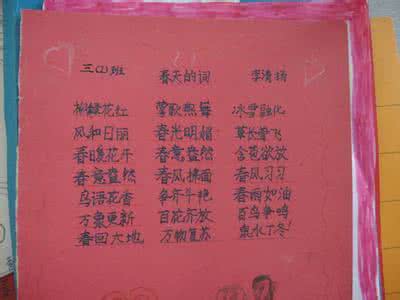 三(2)班 春天的词 李清扬
柳绿花红 莺歌燕舞 冰雪融化
风和日丽 春光明媚 草长莺飞
春暖花开 春意盎然 含苞欲放
春意盎然 春风拂面 春风习习
鸟语花香 争奇斗艳 春雨如油
万象更新 百花齐放 百鸟争鸣
春回大地 万物复苏 泉水丁冬!